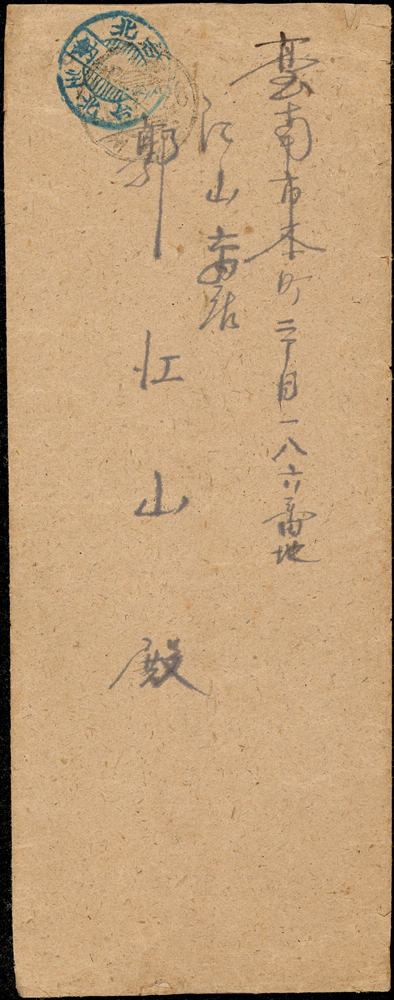 臺南市本町二丁目一八六番地
江山書店
郭江山殿
北